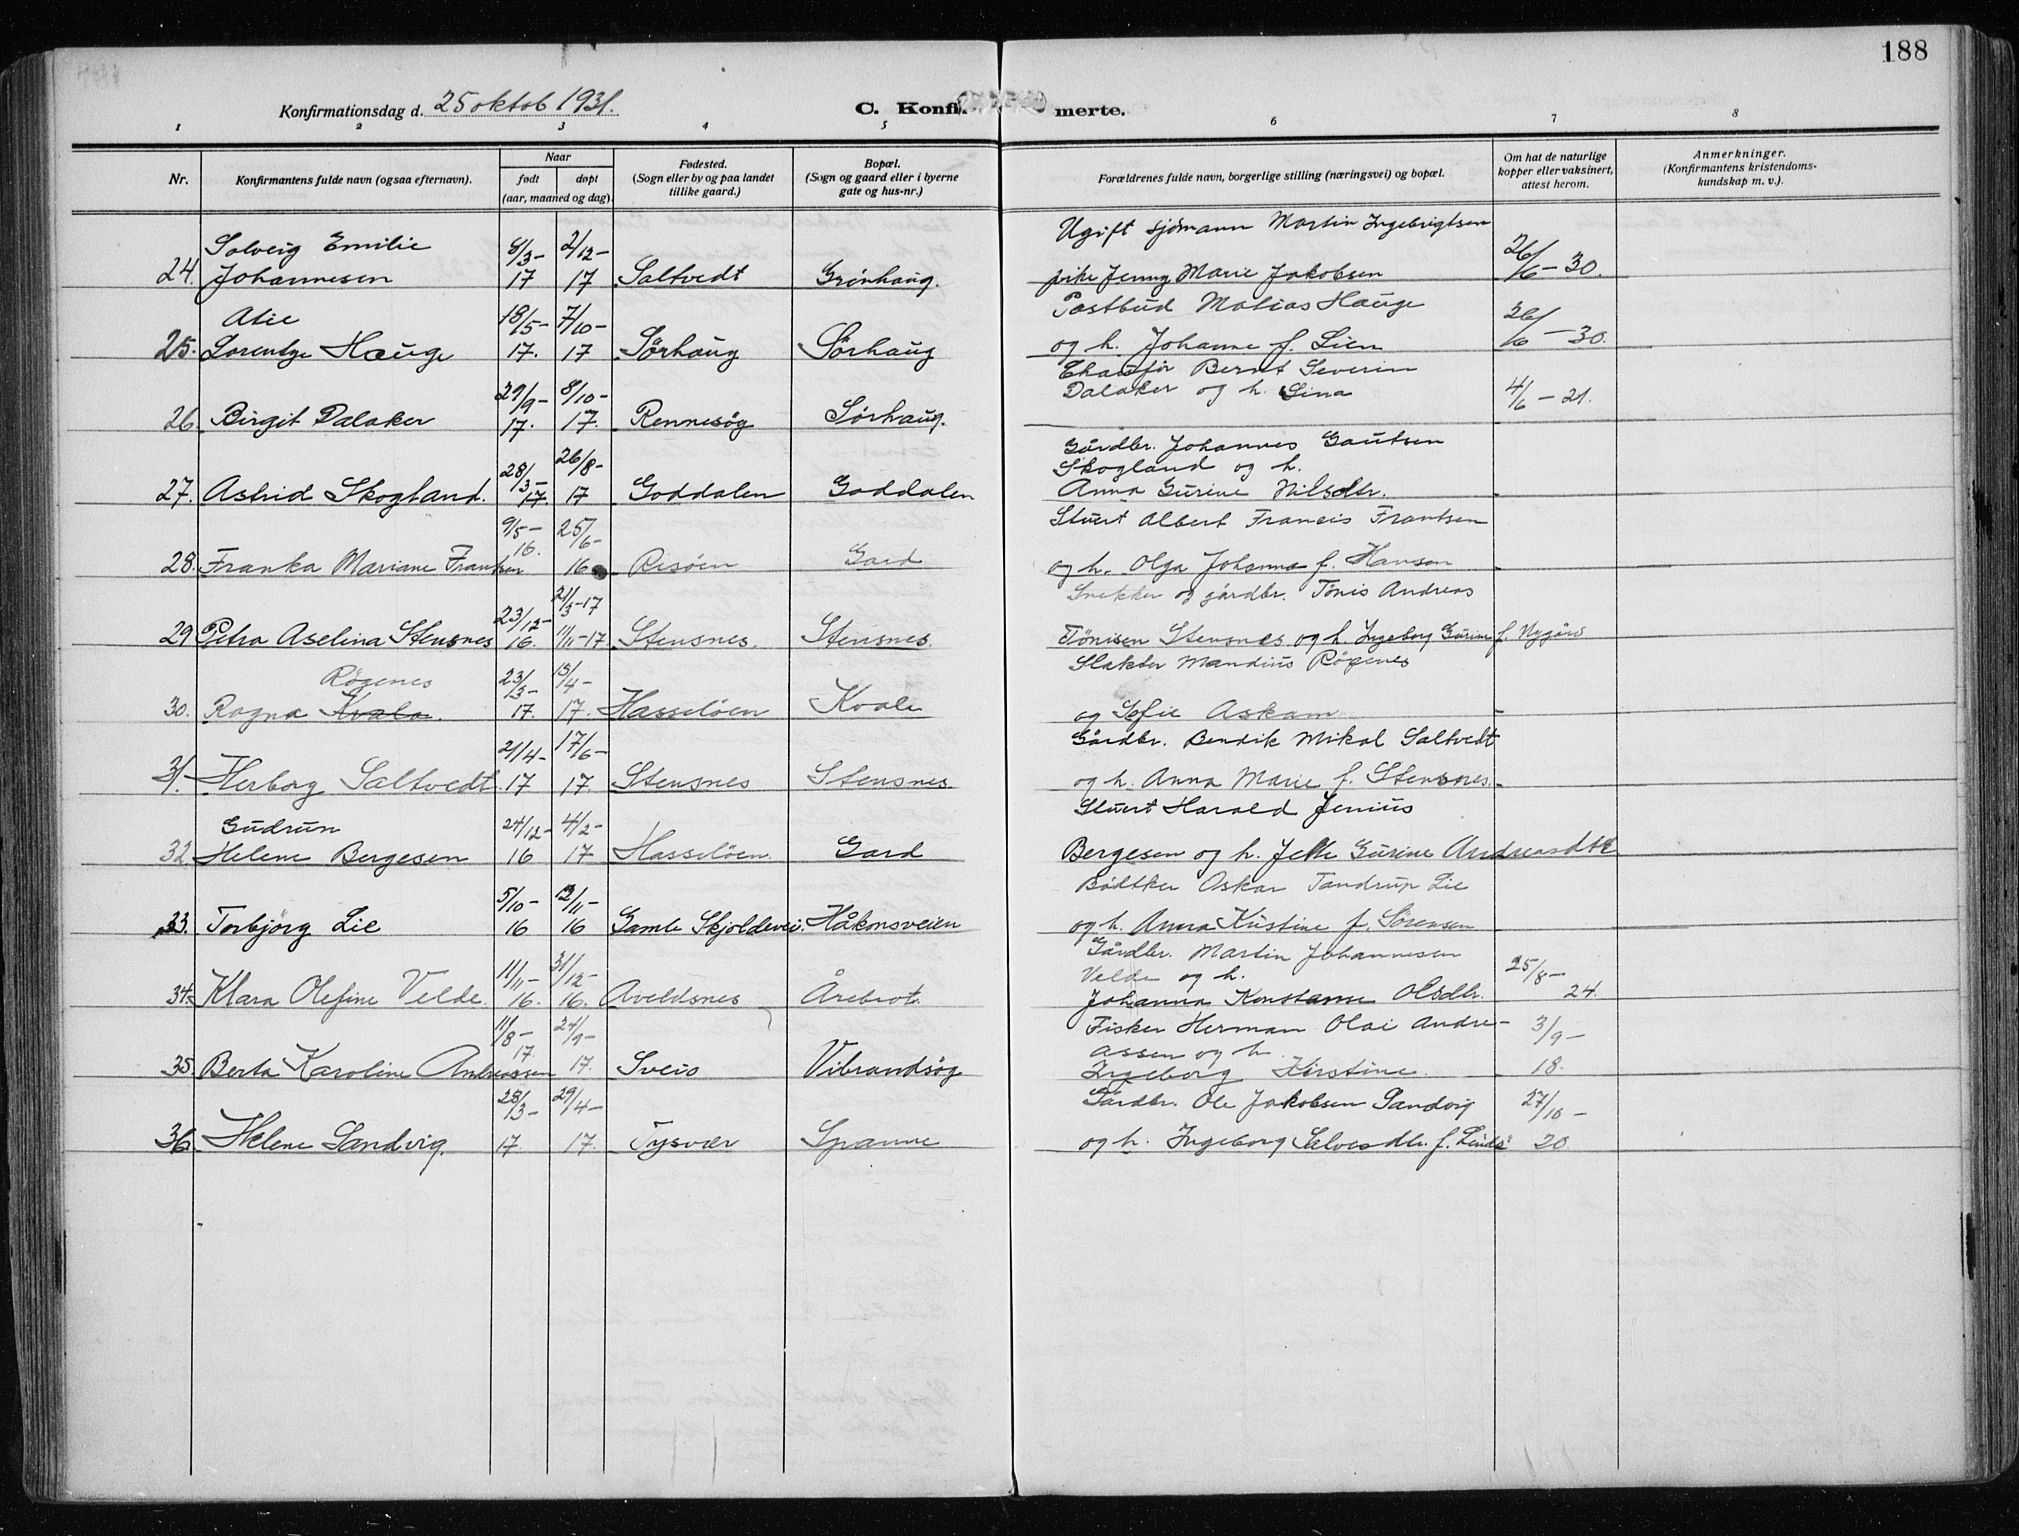 188
Konfirmationsdag d. 25 oktob 1931.
C. Konfirmerte.
1 2 3 4 5 6 7 8
Nr.
Konfirmantens fulde navn (ogsaa efternavn).
Naar
født døpt
(aar, maaned og dag).
Fødested.
(Sogn eller by og paa landet
tillike gaard.)
Bopæl.
(Sogn og gaard eller i byerne
gate og hus-nr.)
Forældrenes fulde navn, borgerlige stilling (næringsvei) og bopæl.
Om hat de naturlige
kopper eller vaksinert,
attest herom.
Anmerkninger.
(Konfirmantens kristendoms-
kundskap m. v.).
Solveig Emilie 8/3- 2/12- Ugift sjømann Martin Ingebrigtsen 26/6-30.
24. Johannesen 17 17 Saltvedt Grönhaug. pike Jenny Marie Jakobsen
Alie 18/5- 7/10- Postbud Matias Hauge 26/6-30.
25. Lorentze Hauge 17. 17 Sørhaug Sørhaug og h. Johanne f. Lien
29/9- 8/10- Chaufför Bernt Severin
Dalaker og h. Gina 4/6-21.
26. Birgit Dalaker 17. 17. Rennesög Sørhaug.
28/3- 26/8- Gårdbr. Johannes Gautsen
Skogland og h.
27. Astrid Skogland. 17. 17 Goddalen Goddalen Anna Gurine Nilsdtr. -
9/5- 25/6- Stuert Albert Francis Frantsen
16.
28. Franka Mariane Frantsen 16 Risöen Gard og h. Olga Johanna f. Hansen -
23/12- 21/3-17 Snekker og gårdbr. Tönis Andreas
29 Petra Aselina Stensnes 16. 1/11-17 Stensnes. Stensnes. Tönisen Stensnes og h. Ingeborg Gurine f. Nygård
Røgenes 23/3- 15/4- Slakter Mandius Røgenes
30. Ragna Kvala. 17. 17. Hasseløen Kvale og Sofie Askam -
21/4- 17/6- Gårdbr. Bendik Mikal Saltvedt
31. Herborg Saltvedt 17 17. Stensnes Stensnes og h. Anna Marie f. Stensnes. -
Gudrun 24/12- 4/2- Stuert Harald Jenius
32. Helene Bergesen 16 17 Hasselöen Gard Bergesen og h. Jette Gurine Andreasdtr
5/10- 12/11- Bödtker Oskar Tandrup Lie
33. Torbjörg Lie 16 16 Gamle Skjoldevei. Håkonsveien og h. Anna Kristine f. Sörensen -
11/11- 31/12- Gårdbr. Martin Johannesen
Velde og h. 25/8-
34. Klara Olefine Velde. 16. 16. Avelsnes Årebrot. Johanna Konstanse Olsdtr. 24.
11/8- 24/9- Fisker Herman Olai Andre- 3/9-
17. assen og h.
35. Berta Karoline Andreassen 17. Sveio Vibrandsög Ingeborg Kirstine. 18.
28/3- 29/4- Gårdbr. Ole Jakobsen Sandvig 27/10-
36. Helene Sandvig. 17. 17. Tysvær Spanne og h. Ingeborg Salvesdtr. f. Lindø 20.